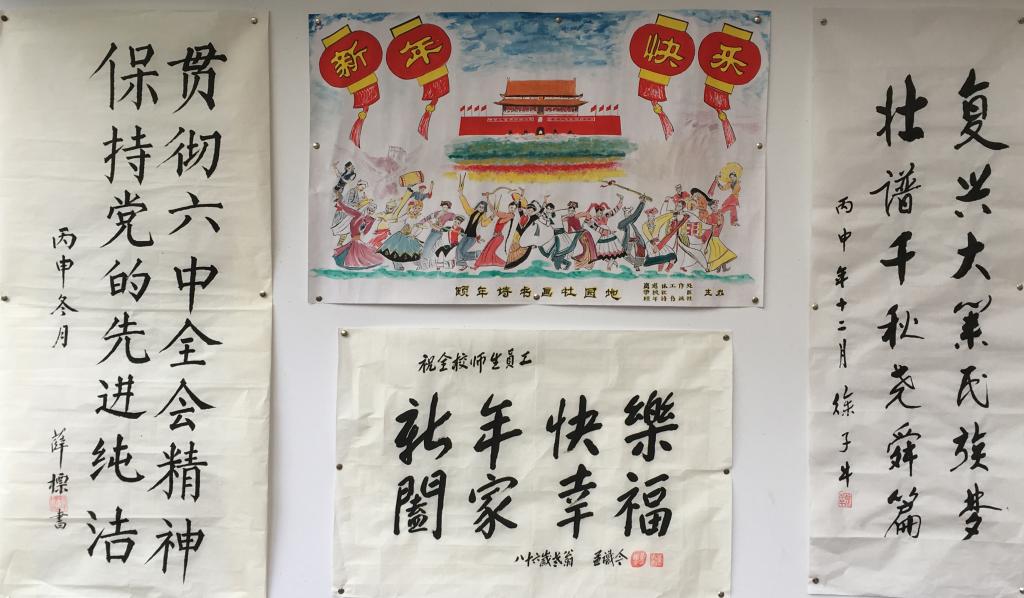 贯彻六中全会精神
保持党的先进纯洁
丙申冬月 薛標書
新年快乐
颐年诗书画社园地
离退休工作处
主办
祝全校师生員工
新年快樂
闔家幸福
八十六歲老翁
复兴大業民族梦
壮谱千秋尧舜篇
丙申年十二月 徐子